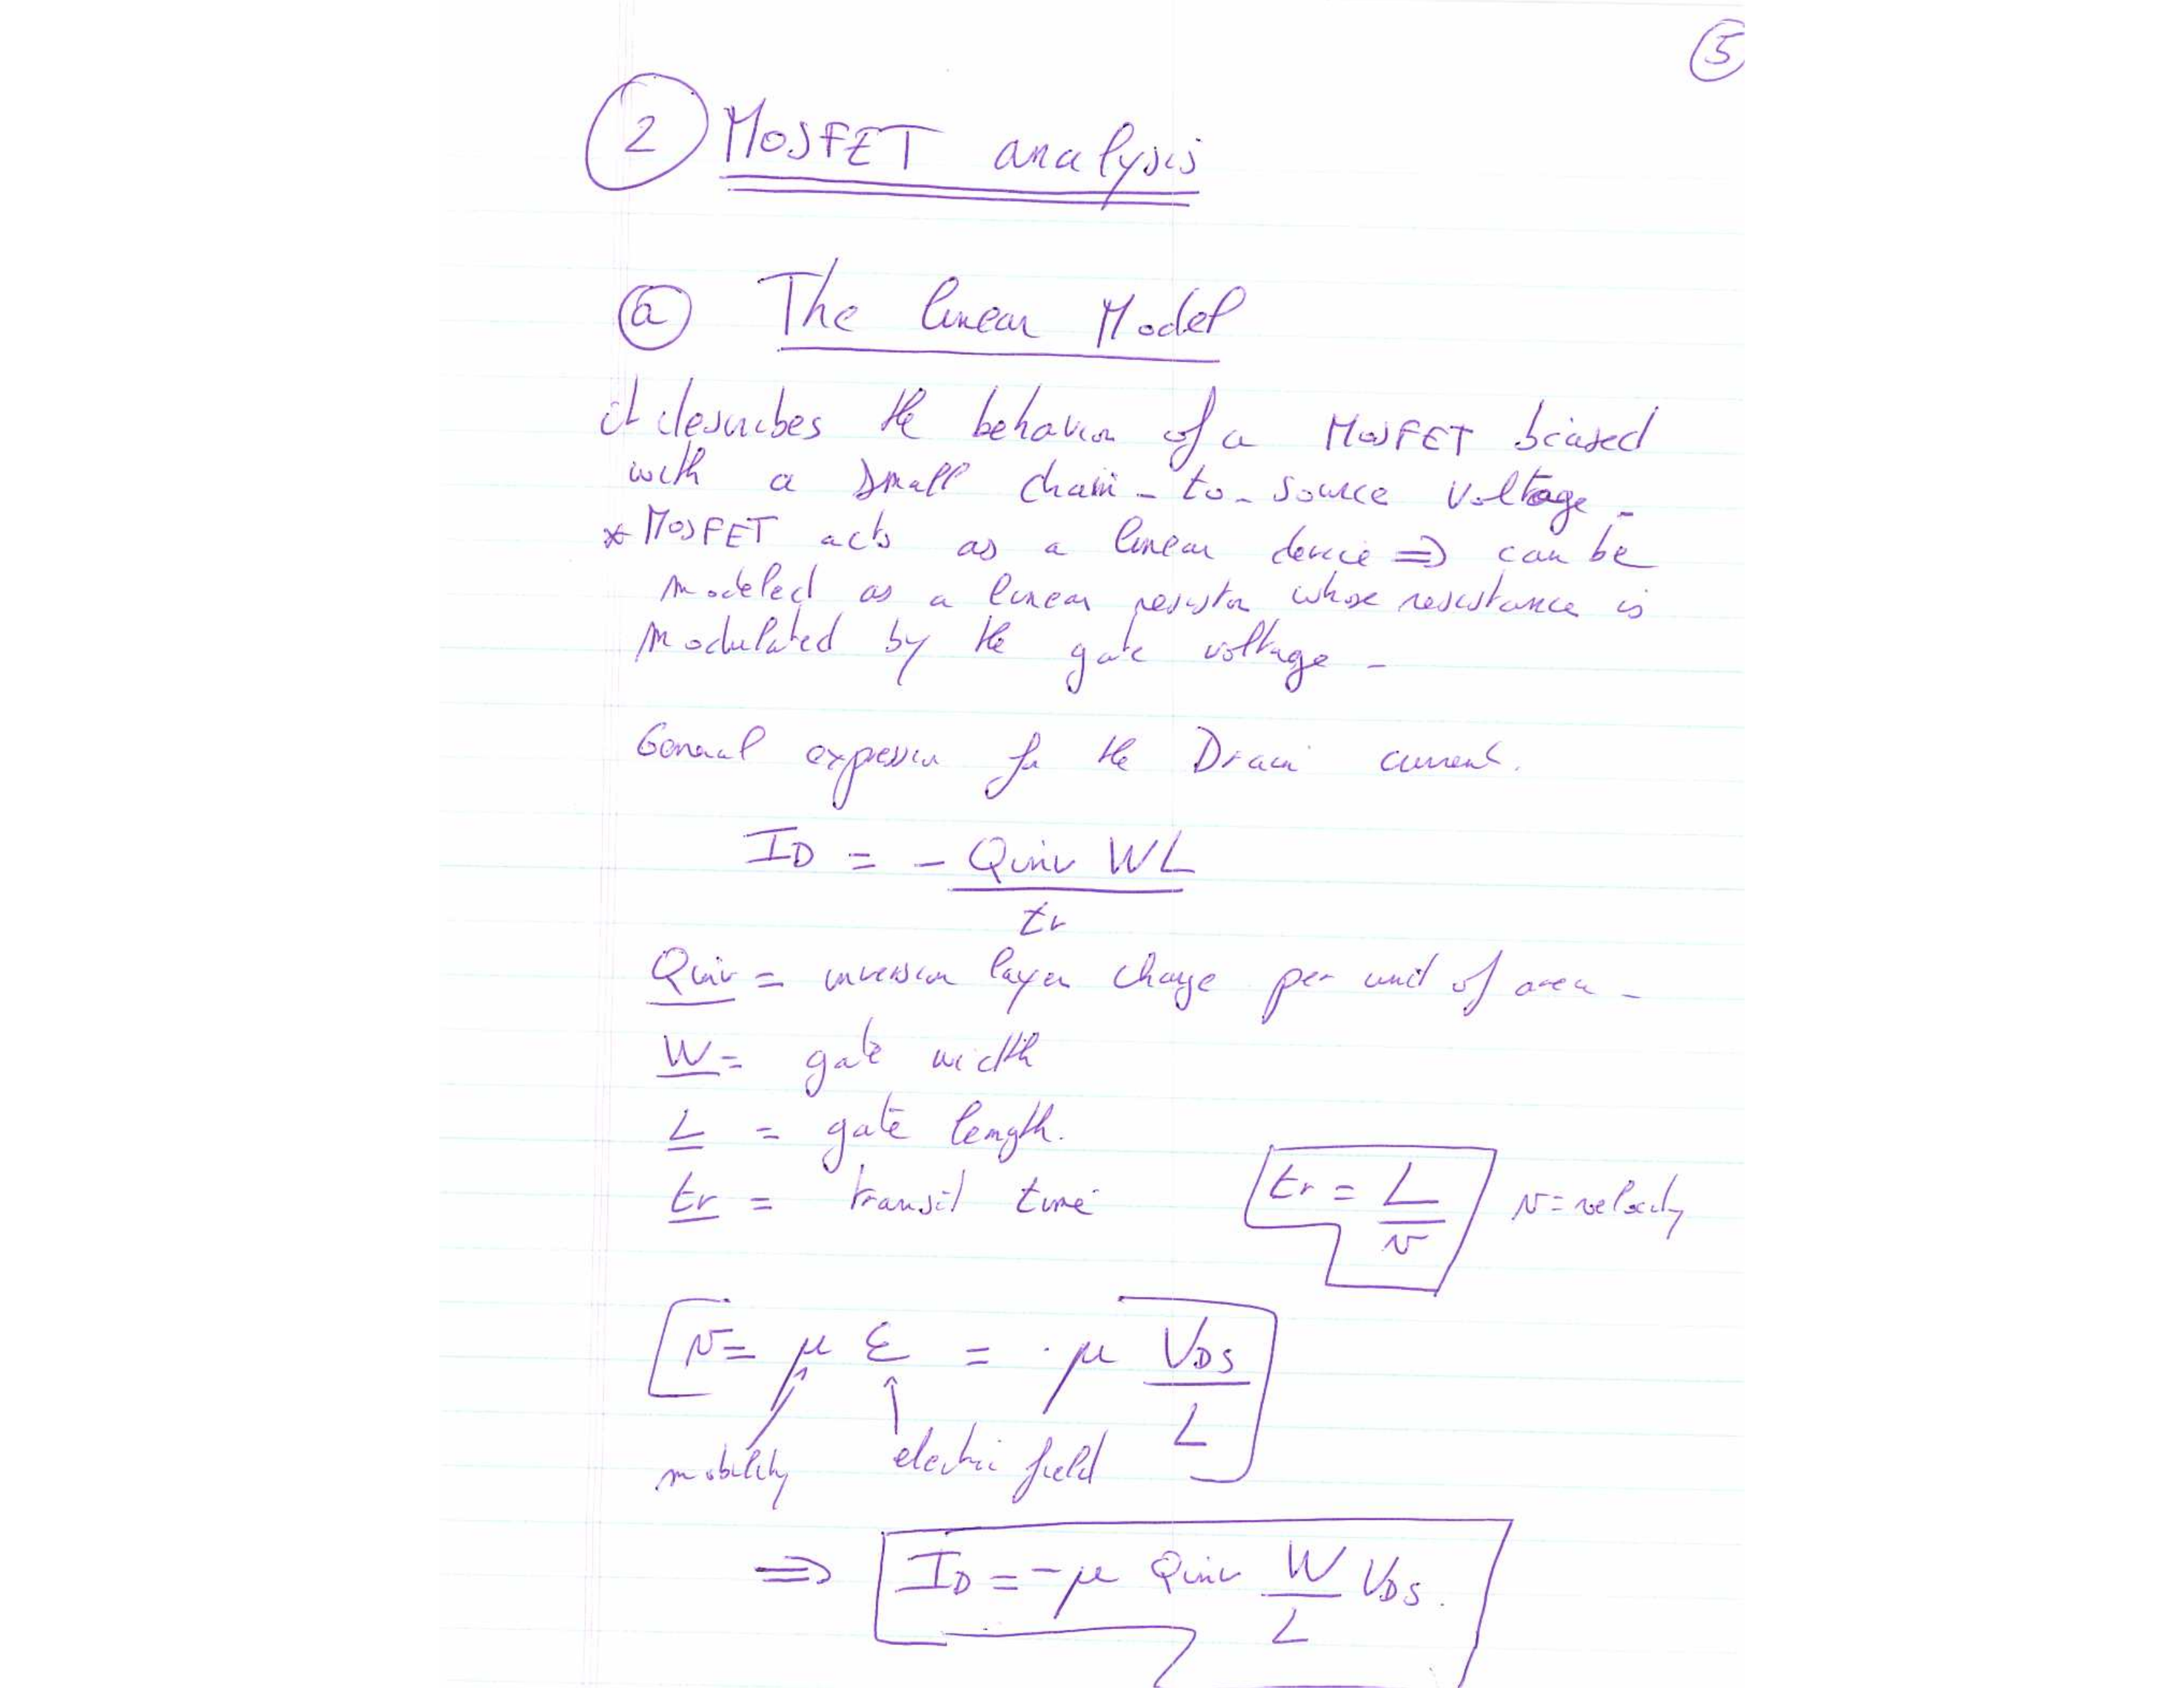 5
2 MOSFET analysis
a The linear Model
it describes the behavior of a MOSFET biased
with a small drain-to-source voltage -
* MOSFET acts as a linear device ⇒ can be
modeled as a linear resistor whose resistance is
modulated by the gate voltage -
General expression for the Drain current.
ID = - Qinv WL / tr
Qinv = inversion layer charge per unit of area -
W = gate width
L = gate length.
tr = transit time tr = L / v v = velocity
v = μ ε = μ VDS / L
mobility electric field
⇒ ID = -μ Qinv W / L VDS.